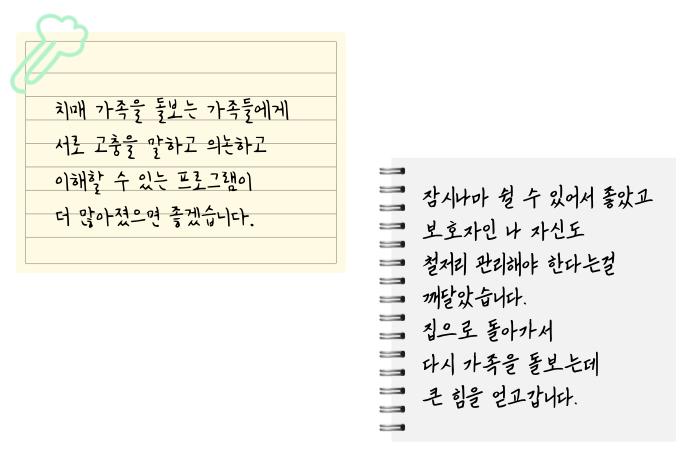 치매 가족을 돌보는 가족들에게
서로 고충을 말하고 의논하고
이해할 수 있는 프로그램이
더 많아졌으면 좋겠습니다.
잠시나마 쉴 수 있어서 좋았고
보호자인 나 자신도
철저리 관리해야 한다는걸
깨달았습니다.
집으로 돌아가서
다시 가족을 돌보는데
큰 힘을 얻고갑니다.